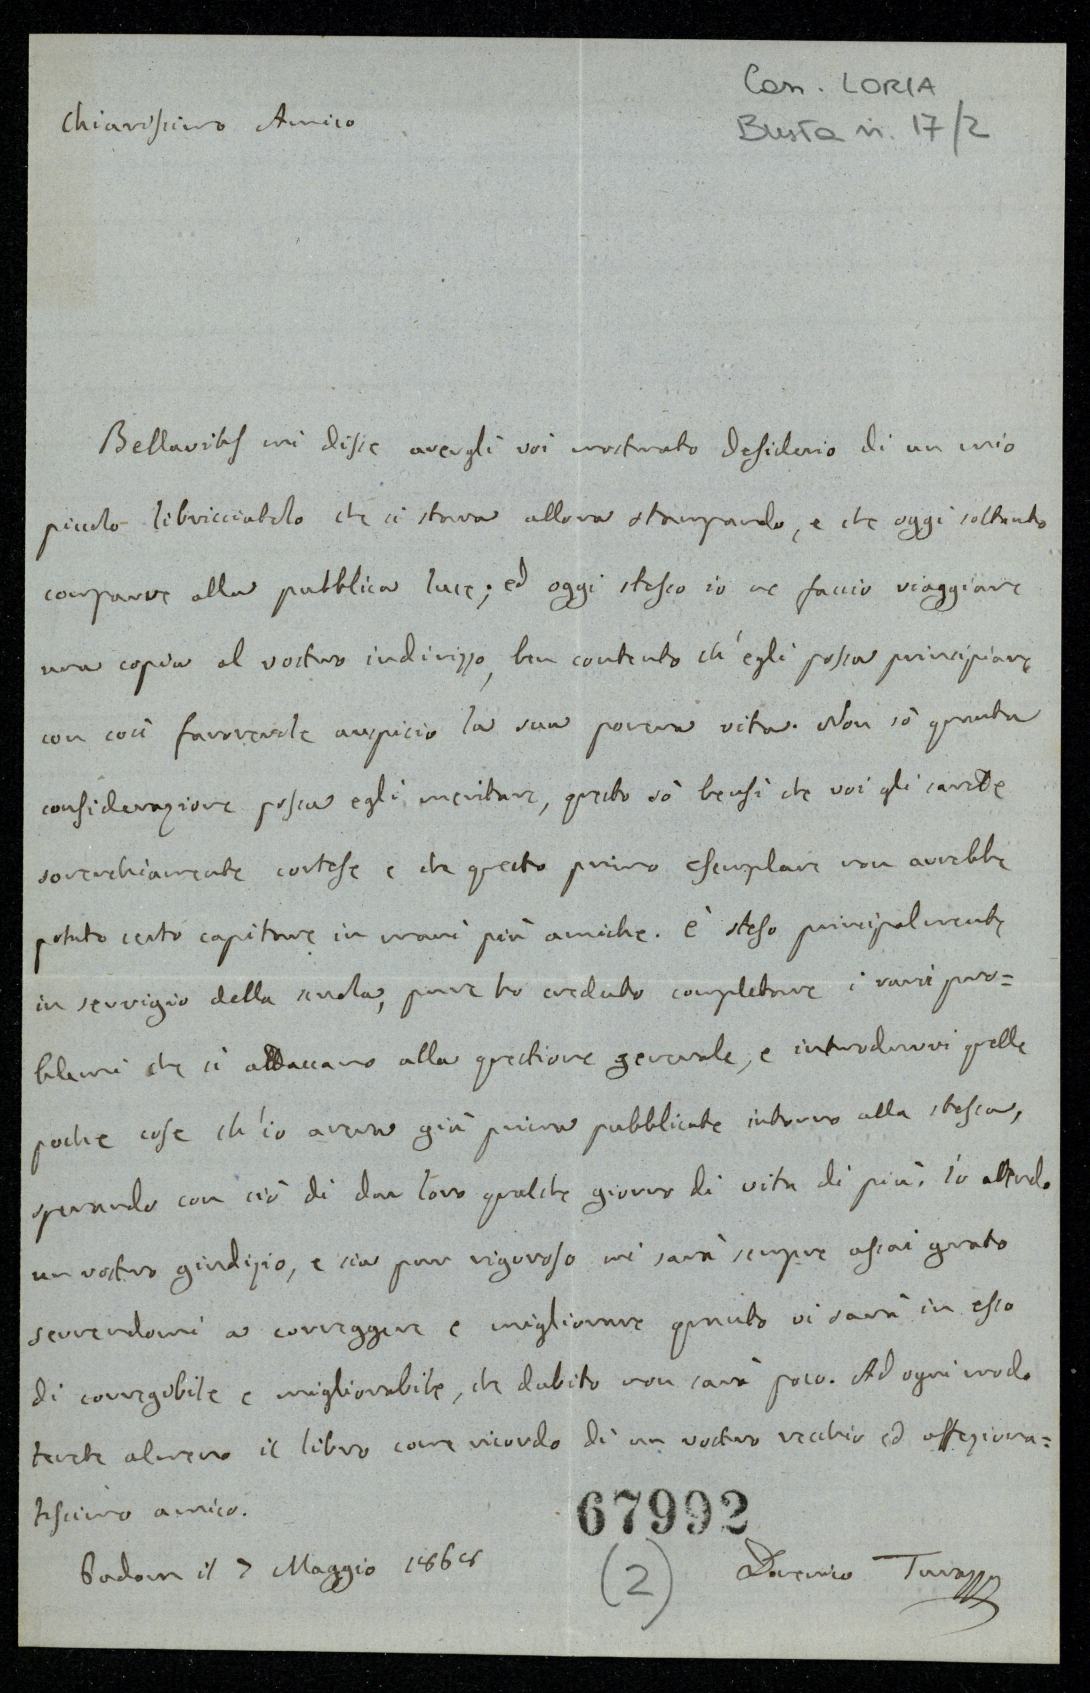 Con. LORIA
Busta n. 17/2
Chiarissimo Amico
Bellavitis mi disse avergli voi mostrato desiderio di un mio
piccolo libricciatolo che si stava allora stampando, e che oggi soltanto
comparve alla pubblica luce; ed oggi stesso io ne faccio viaggiare
una copia al vostro indirizzo, ben contento ch'egli possa principiare
con così favorevole auspicio la sua povera vita. Non sò quanta
considerazione possa egli meritare, questo sò bensì che voi gli sarete
soverchiamente cortese e che questo primo esemplare non avrebbe
potuto certo capitare in mani più amiche. È steso principalmente
in servigio della scuola, pure ho creduto completare i varii pro=
blemi che si attaccano alla questione generale, e introdurvi quelle
poche cose ch'io aveva già prima pubblicate intorno alla stessa,
sperando con ciò di dar loro qualche giorno di vita di più. Io attendo
un vostro giudizio, e sia pur rigoroso mi sarà sempre assai grato
servendomi a correggere e migliorare quanto vi sarà in esso
di corregibile e migliorabile, che dubito non sarà poco. Ad ogni modo
tenete almeno il libro come ricordo di un vostro vecchio ed affeziona=
tissimo amico.
67992
Padova il 7 Maggio 1868
(2)
Domenico Turazza